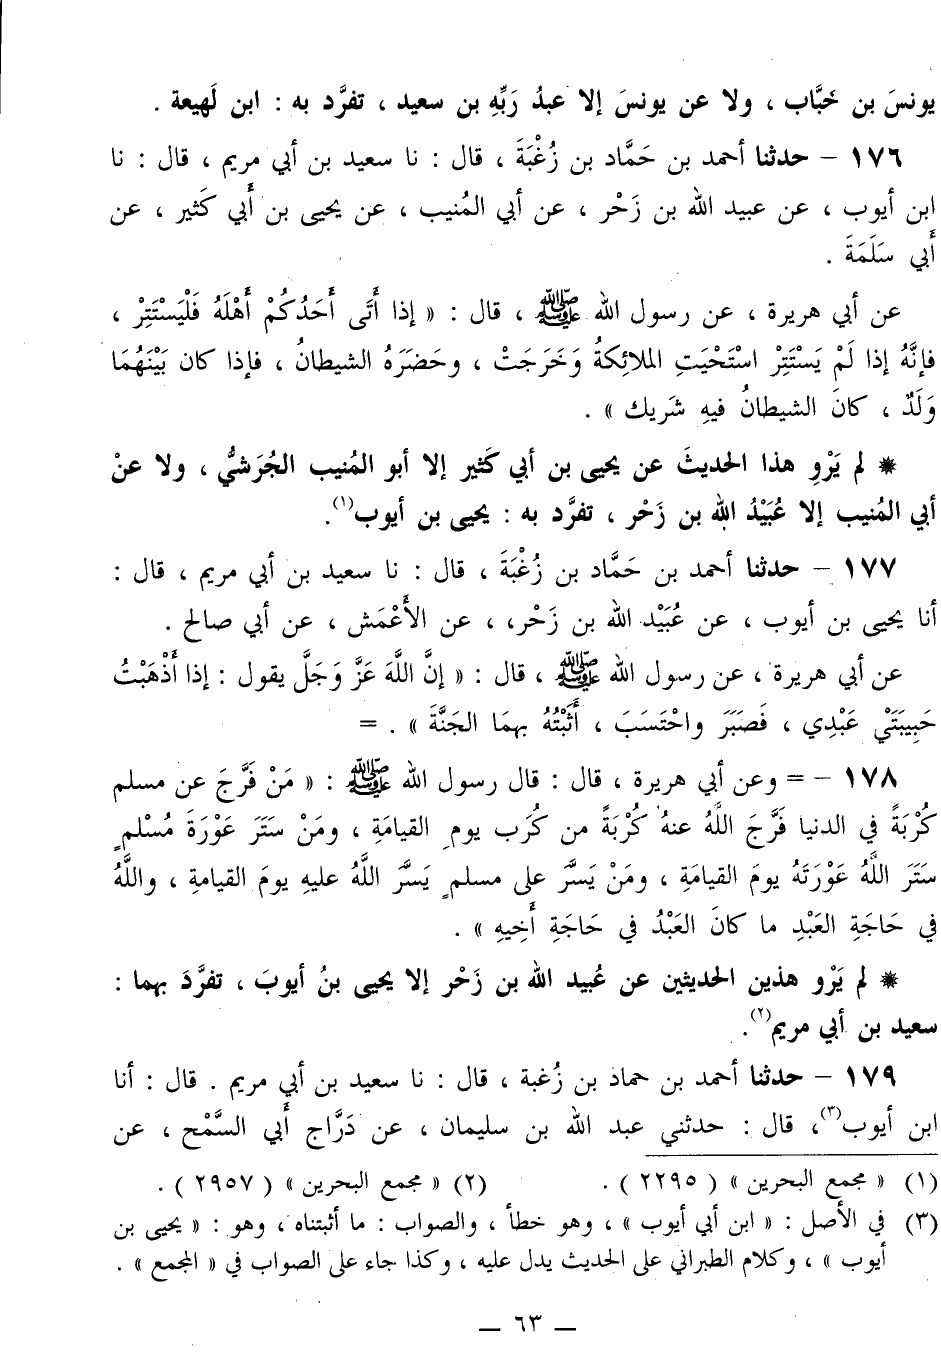 يونسَ بن خَبَّاب ، ولا عن يونسَ إلا عبدُ رَبِّهِ بن سعيد ، تفرَّد به : ابن لَهيعة .
١٧٦ – حدثنا أحمد بن حَمَّاد بن زُغْبَةَ ، قال : نا سعيد بن أبي مريم ، قال : نا
ابن أيوب ، عن عبيد الله بن زَحْر ، عن أبي المُنيب ، عن يحيى بن أبي كَثير ، عن
أبي سَلَمَةَ .
عن أبي هريرة ، عن رسول الله ﷺ ، قال : « إذا أَتَى أَحَدُكُمْ أَهْلَهُ فَلْيَسْتَتِرْ ،
فإنَّهُ إذا لَمْ يَسْتَتِرْ اسْتَحْيَتِ الملائِكةُ وَخَرَجَتْ ، وحَضَرَهُ الشيطانُ ، فإذا كان بَيْنَهُمَا
وَلَدٌ ، كانَ الشيطانُ فيهِ شَريك » .
* لم يَرْوِ هذا الحديثَ عن يحيى بن أبي كَثير إلا أبو المُنيب الجُرَشيُّ ، ولا عنْ
أبي المُنيب إلا عُبَيْدُ الله بن زَحْر ، تفرَّد به : يحيى بن أيوب(١).
١٧٧ – حدثنا أحمد بن حَمَّاد بن زُغْبَةَ ، قال : نا سعيد بن أبي مريم ، قال :
أنا يحيى بن أيوب ، عن عُبَيْد الله بن زَحْر، ، عن الأَعْمَش ، عن أبي صالح .
عن أبي هريرة ، عن رسول الله ﷺ ، قال : « إنَّ اللَّهَ عَزَّ وَجَلَّ يقول : إذا أَذْهَبْتُ
حَبِيبَتَيْ عَبْدِي ، فَصَبَرَ واحْتَسَبَ ، أَثَبْتُهُ بهمَا الجَنَّةَ » . =
١٧٨ – = وعن أبي هريرة ، قال : قال رسول الله ﷺ : « مَنْ فَرَّجَ عن مسلم
كُرْبَةً في الدنيا فَرَّجَ اللَّهُ عنهُ كُرْبَةً من كُرَب يومِ القيامَةِ ، ومَنْ سَتَرَ عَوْرَةَ مُسْلمٍ
سَتَرَ اللَّهُ عَوْرَتَهُ يومَ القيامَةِ ، ومَنْ يَسَّرَ على مسلمٍ يَسَّرَ اللَّهُ عليهِ يومَ القيامةِ ، واللَّهُ
في حَاجَةِ العَبْدِ ما كانَ العَبْدُ في حَاجَةِ أَخِيهِ » .
* لم يَرْو هذين الحديثين عن عُبيد الله بن زَحْر إلا يحيى بنُ أيوبَ ، تفرَّدَ بهما :
سعيد بن أبي مريم(٢).
١٧٩ – حدثنا أحمد بن حماد بن زُغبة ، قال : نا سعيد بن أبي مريم . قال : أنا
ابن أيوب(٣)، قال : حدثني عبد الله بن سليمان ، عن دَرَّاج أبي السَّمْح ، عن
(١) « مجمع البحرين » ( ٢٢٩٥ ) . (٢) « مجمع البحرين » ( ٢٩٥٧ ) .
(٣) في الأصل : « ابن أبي أيوب » ، وهو خطأ ، والصواب : ما أثبتناه ، وهو : « يحيى بن
أيوب » ، وكلام الطبراني على الحديث يدل عليه ، وكذا جاء على الصواب في « المجمع » .
— ٦٣ —